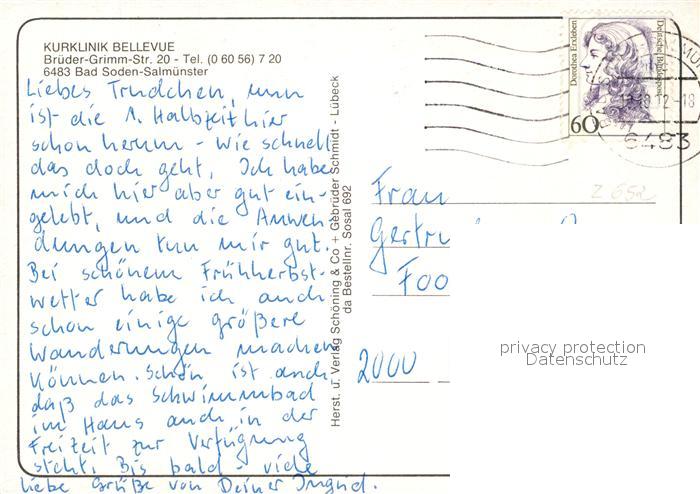 KURKLINIK BELLEVUE
Brüder-Grimm-Str. 20 - Tel. (0 60 56) 7 20
6483 Bad Soden-Salmünster
Liebes Trudchen, nun
ist die 1. Halbzeit hier
schon herum - wie schnell
das doch geht. Ich habe
mich hier aber gut ein-
gelebt, und die Anwen-
dungen tun mir gut.
Bei schönem Frühherbst-
wetter habe ich auch
schon einige größere
Wanderungen machen
können. Schön ist auch,
daß das Schwimmbad
im Haus auch in der
Freizeit zur Verfügung
steht. Bis bald - viele
liebe Grüße von Deiner Ingrid.
Herst. u. Verlag Schöning & Co + Gebrüder Schmidt - Lübeck
da Bestellnr. Sosal 692
Dorothea Erxleben
Deutsche Bundespost
60
6483
Z 652
Frau
Gertru
2000
privacy protection
Datenschutz